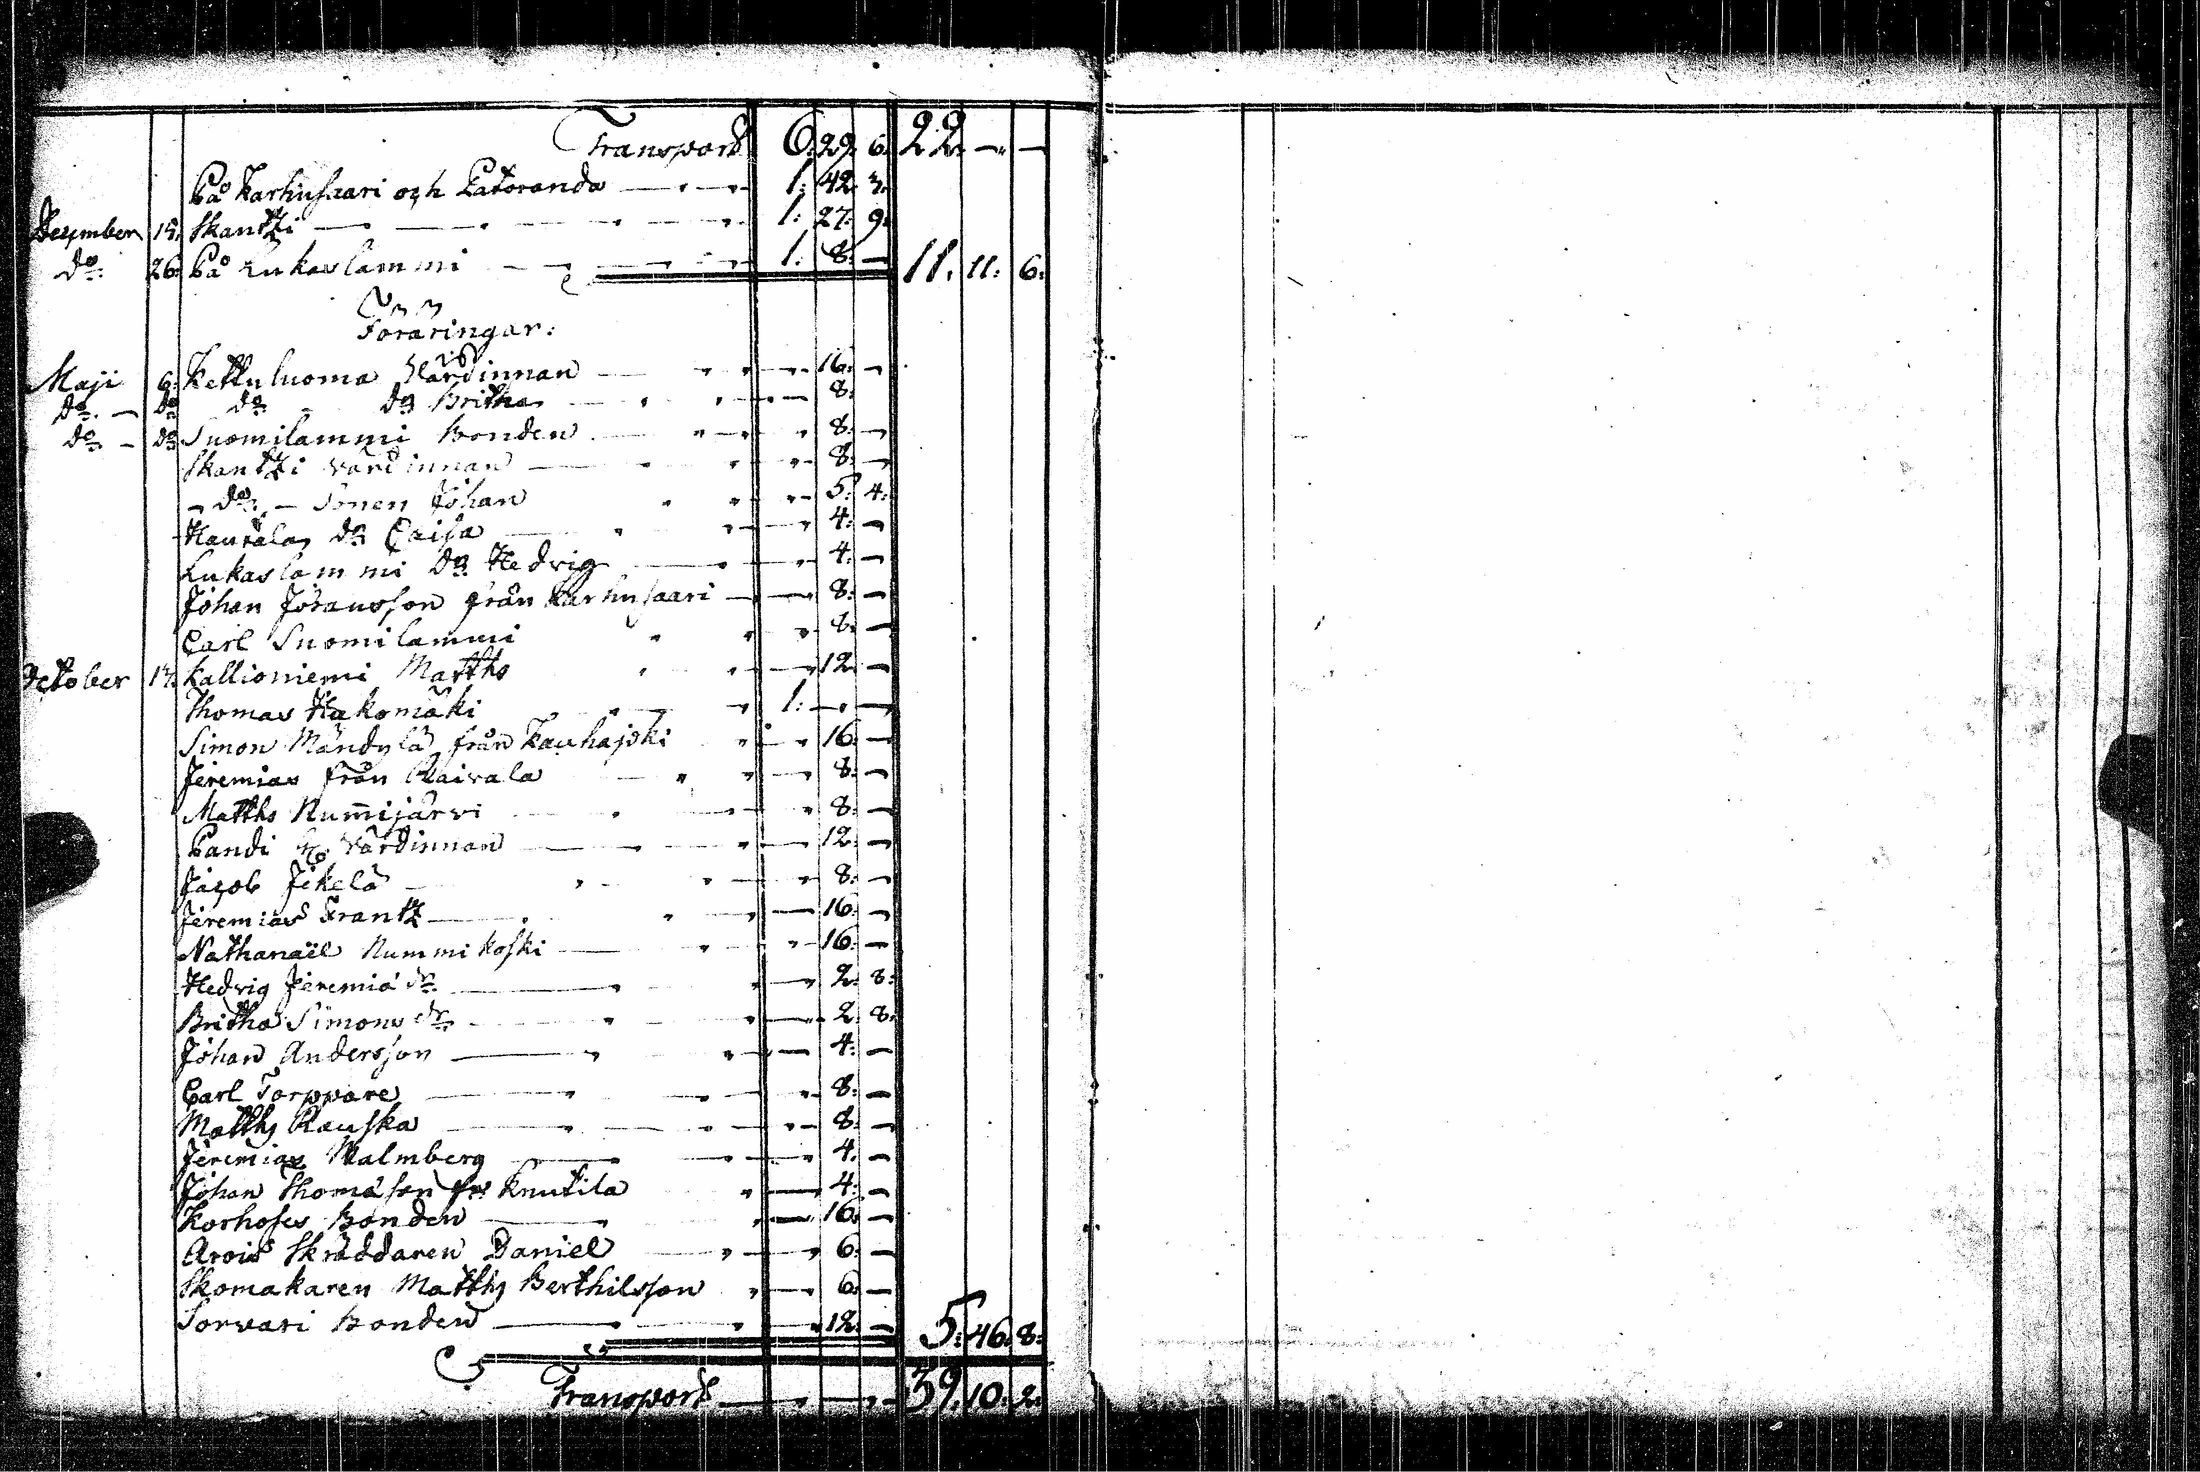 Transport 6: 29: 6: 22: — —
På Karhusaari och Patoranda — 1: 42: 3:
December 15: Skantzi — 1: 27: 9:
do: 26: På Lukaslammi — 1: 8: — 11: 11: 6:
Föräringar:
Maji 6: Kettuluoma Värdinnan — 16: —
do: — do do do Britha — 8:
do: — do Suomilammi Bonden — 8: —
Skantzi värdinnan — 8: —
— do: — Sonen Johan 5: 4:
Hautala do Caisa — 4: —
Lukaslammi do Hedvig — 4: —
Johan Johansson från Karhusaari — 8: —
Carl Suomilammi 8: —
October 17: Kallioniemi Matths 12: —
Thomas Hakomäki 1: — —
Simon Mändylä från Kauhajoki 16: —
Jeremias från Raivala 8: —
Matths Num̅ijärvi 8: —
Pandi värdinnan — 12: —
Jacob Jikelä — 8: —
Jeremias Frantz — 16: —
Nathanaël Nummikoski — 16: —
Hedvig Jeremiä dr — 2: 8:
Britha Simons dr — 2: 8:
Johan Andersson — 4: —
Carl Torpvare — 8: —
Matths Rauska — 8: —
Jeremias Malmberg — 4: —
Johan Thomäson Knutila 4: —
Korhoses Bonden — 16: —
Skräddaren Daniel — 6: —
Skomakaren Matths Berthilsson 6: —
Torvari Bonden — 12: — 5: 46: 8:
Transport — 39: 10: 2: